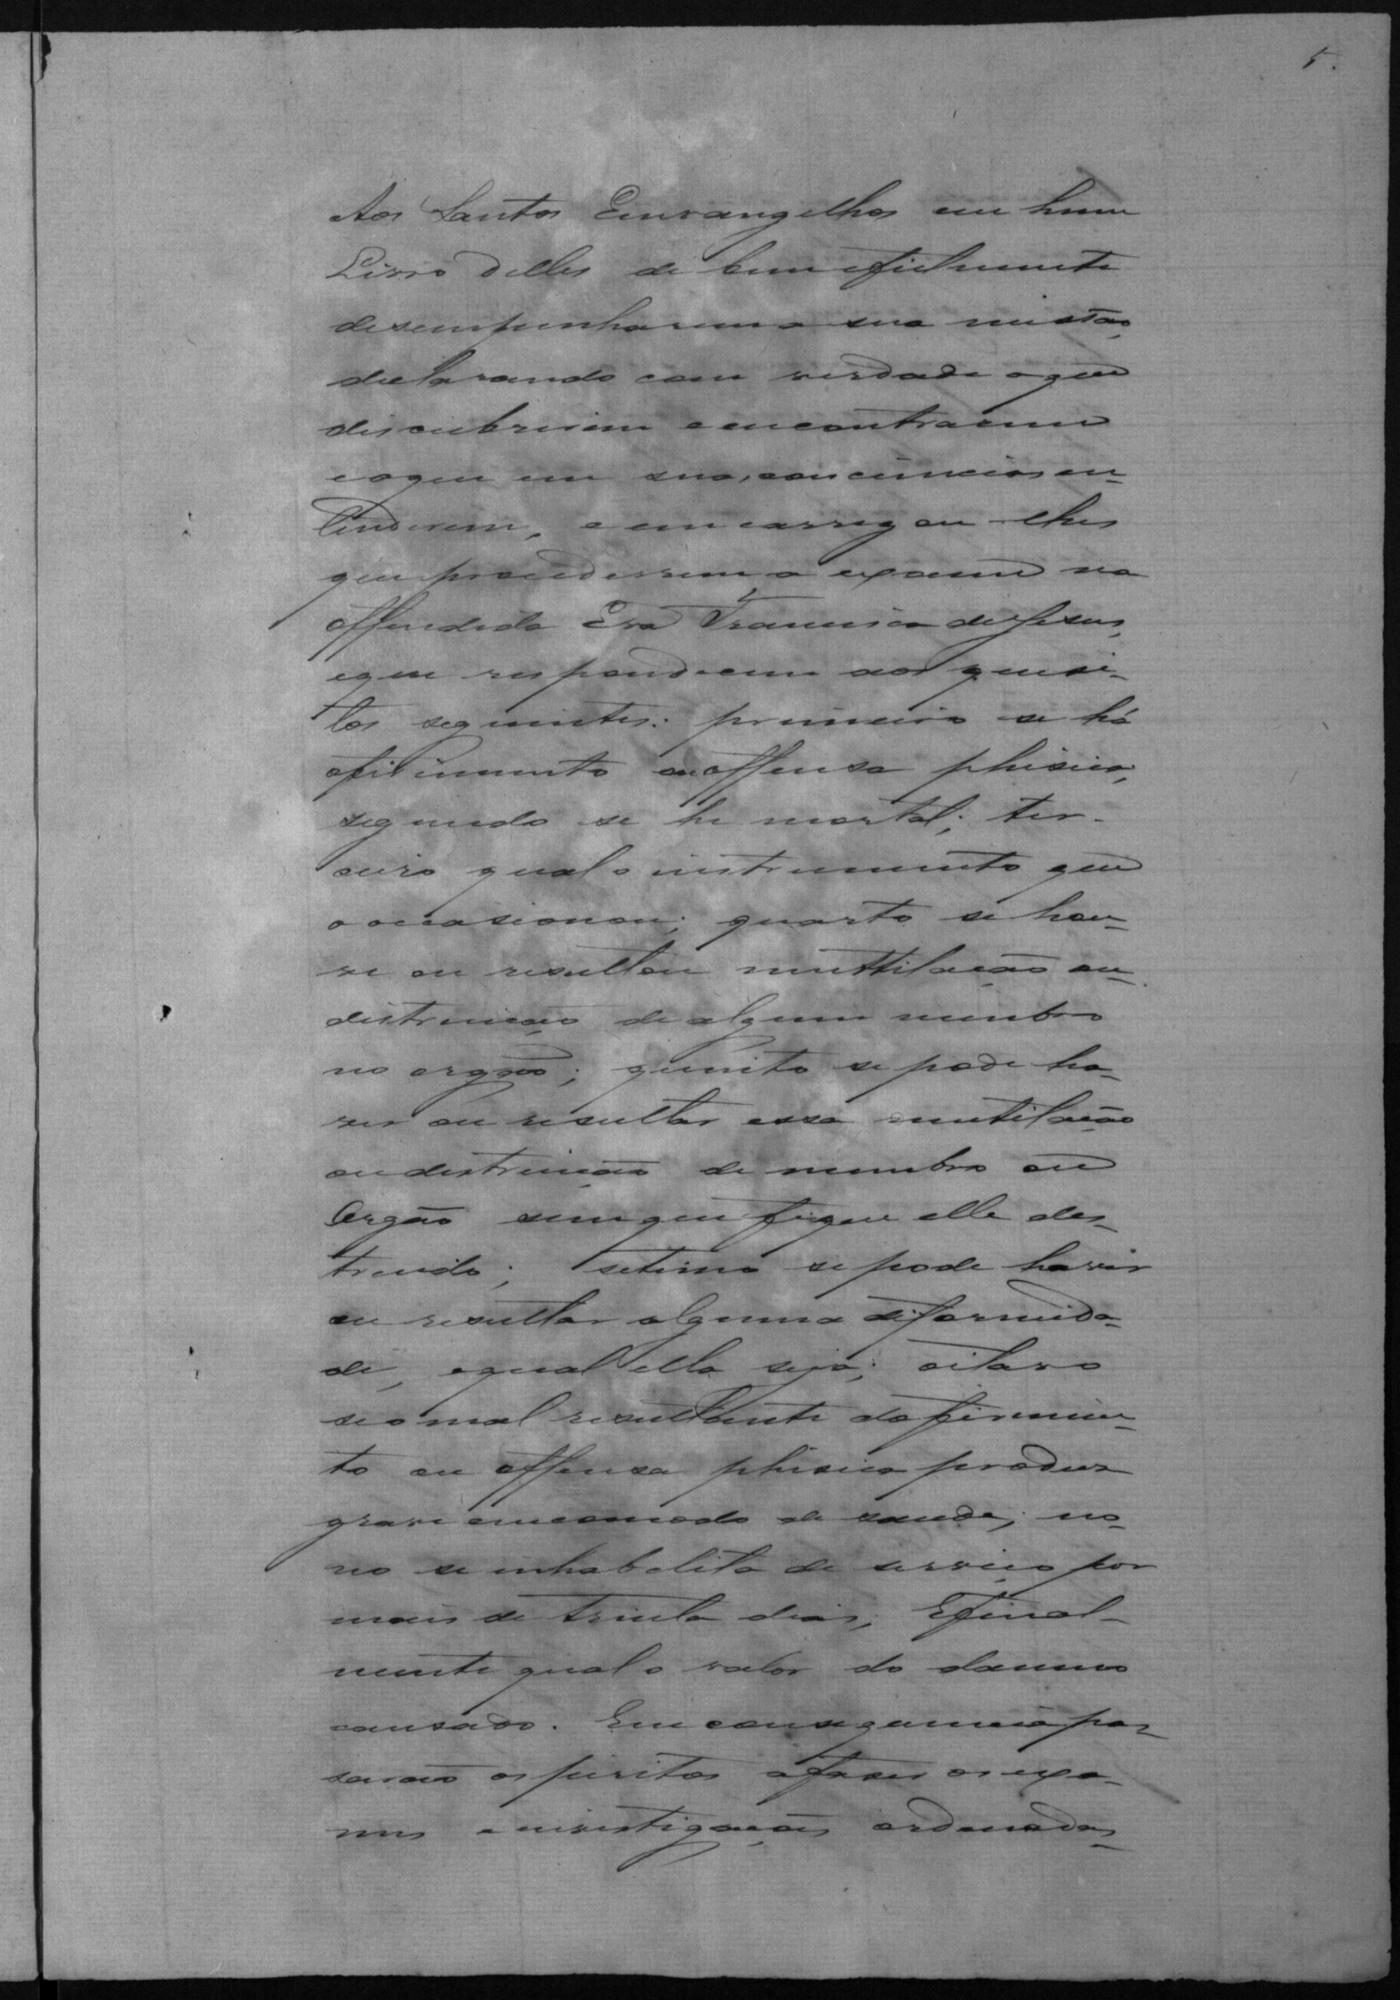 5.
Aos Santos Emvangelhos em hum
Livro delles de bem efielmente
desempenharem a sua missão,
declarando com verdade oque
discubrirem eencontrarem
eoque em suas conciencias en-
tenderem, e emcarregou-lhes
que procedessem a exame na
offendida Eva Francisca de Jesus,
eque respondecem aos quesi-
tos seguintes: primeiro se há
ofirimento ou offensa phisica;
segundo se he mortal; ter-
ceiro qual o instrumento que
o occasionou; quarto se hou-
ve ou resultou muttilação ou
distruição de algum membro
no orgão; quinto se pode ha-
ver ou resultar essa mutilação
ou distruição de membro ou
Orgão sem que fique elle des-
truido; setimo se pode haver
ou resultar alguma diformida-
de, equal ella seja; oitavo
se o mal resultante do firimen-
to ou offensa phisica produz
grave emcomodo de saude; no-
no se inhabelita de serviço por
mais de trinta dias; Efinal-
mente qual o valor do damno
causado. Em consequencia pas-
sarão os peritos a fazer os exa-
mes e investigações ordenadas,